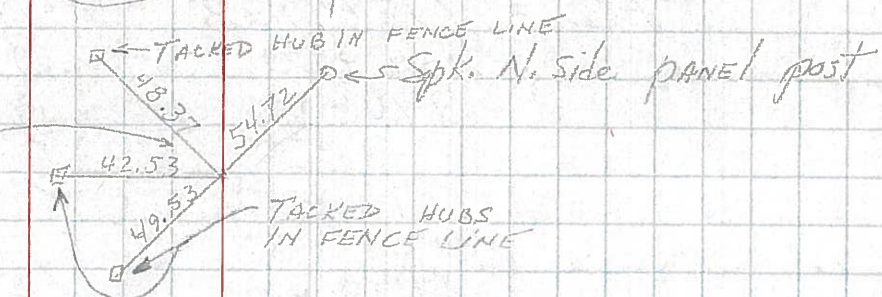 TACKED HUB IN FENCE LINE
Spk. N. Side PANEL post
48.37
54.72
42.53
49.53
TACKED HUBS
IN FENCE LINE